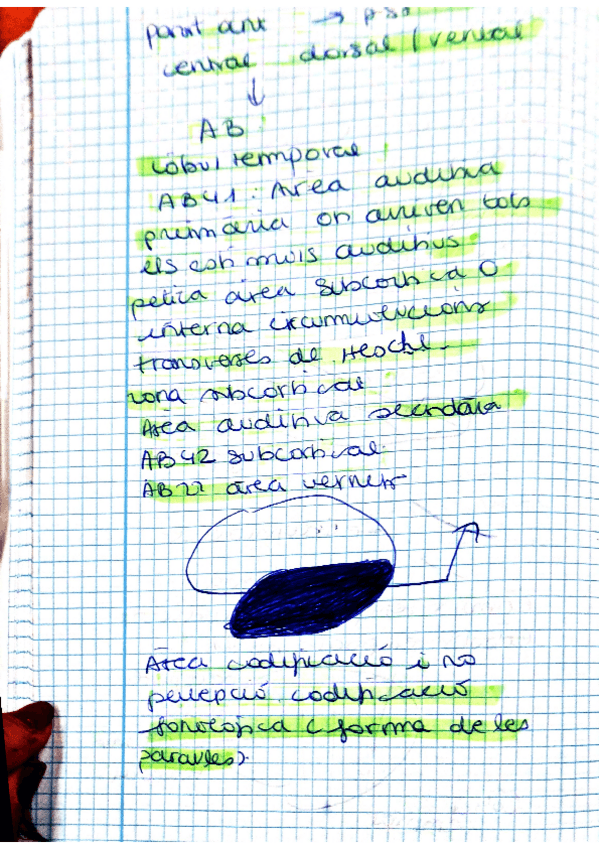 part ant → pos
central dorsal / ventral
↓
AB
lòbul temporal
AB41: Area auditiva
primària on arriven tots
els estimuls auditius
petita àrea subcortical O
interna circumvolucions
transverses de Heschl.
zona subcortical
Area auditiva secundària
AB42 subcortical.
AB22 àrea
Area codificació i no
percepció. codificació
fonològica (forma de les
paraules).